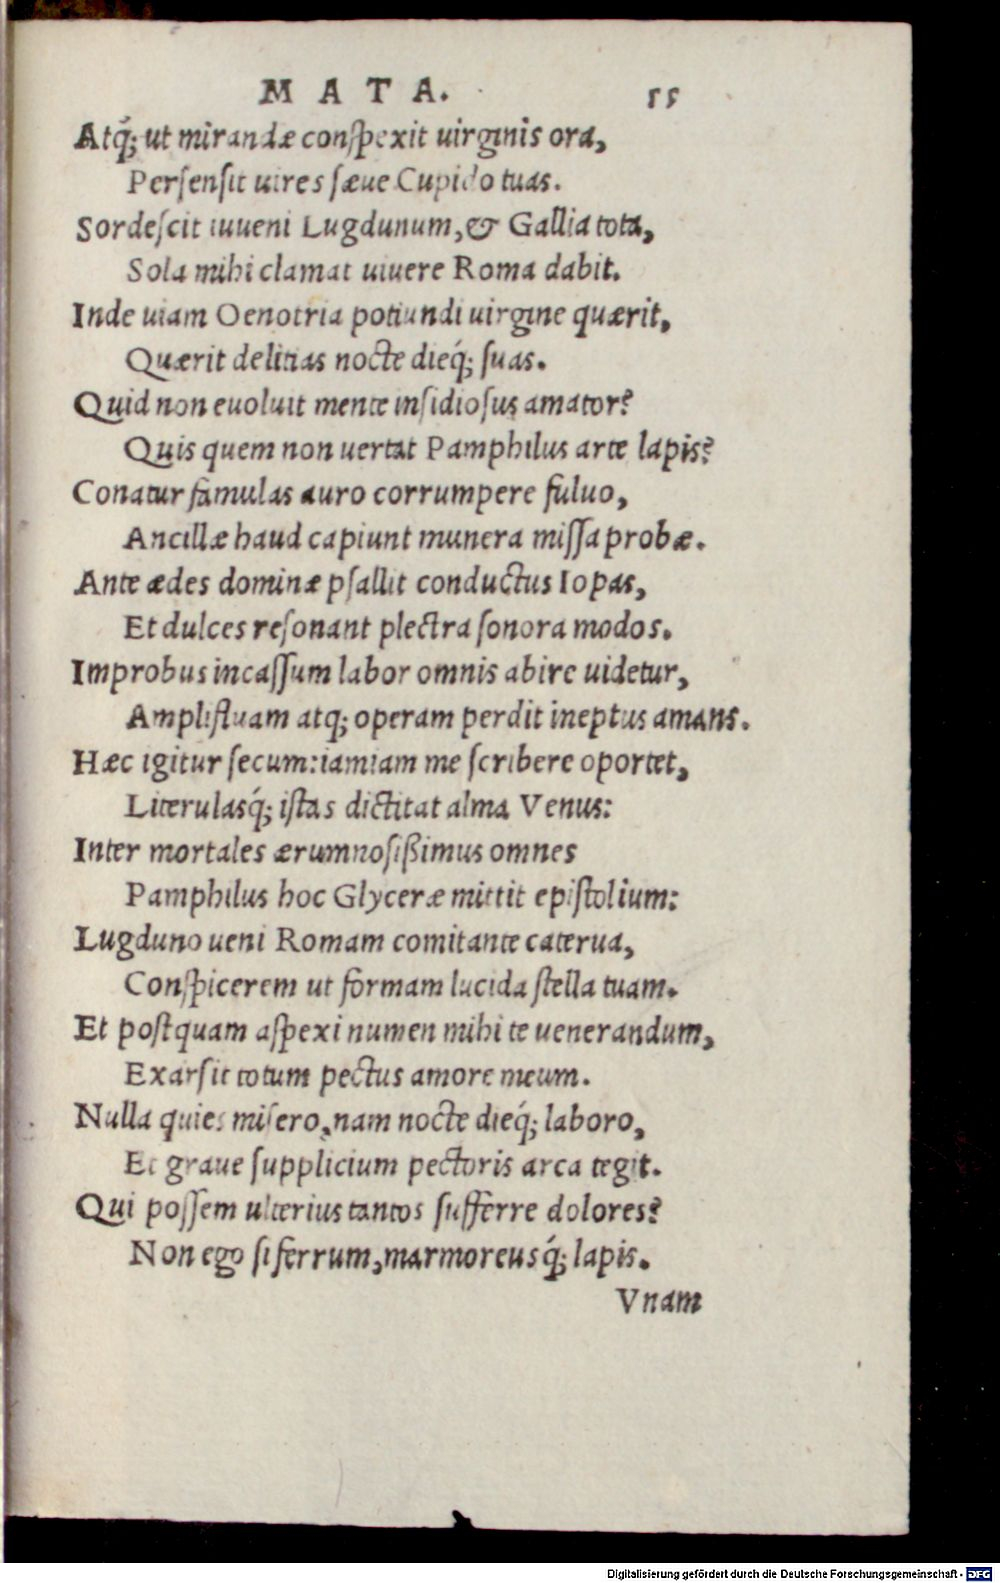 MATA. 55
Atq́; ut mirandæ conſpexit uirginis ora,
Perſenſit uires ſæue Cupido tuas.
Sordeſcit iuueni Lugdunum, & Gallia tota,
Sola mihi clamat uiuere Roma dabit.
Inde uiam Oenotria potiundi uirgine quærit,
Quærit delitias nocte dieq́; ſuas.
Quid non euoluit mente inſidioſus amator?
Quis quem non uertat Pamphilus arte lapis?
Conatur famulas auro corrumpere fuluo,
Ancillæ haud capiunt munera miſſa probæ.
Ante ædes dominæ pſallit conductus Iopas,
Et dulces reſonant plectra ſonora modos.
Improbus incaſſum labor omnis abire uidetur,
Ampliſluam atq; operam perdit ineptus amans.
Hæc igitur ſecum: iamiam me ſcribere oportet,
Literulasq́; iſtas dictitat alma Venus:
Inter mortales ærumnoſißimus omnes
Pamphilus hoc Glyceræ mittit epiſtolium:
Lugduno ueni Romam comitante caterua,
Conſpicerem ut formam lucida ſtella tuam.
Et poſtquam aſpexi numen mihi te uenerandum,
Exarſit totum pectus amore meum.
Nulla quies miſero, nam nocte dieq́; laboro,
Et graue ſupplicium pectoris arca tegit.
Qui poſſem ulterius tantos ſufferre dolores?
Non ego ſi ferrum, marmoreusq́; lapis.
Vnam
Digitalisierung gefördert durch die Deutsche Forschungsgemeinschaft - DFG